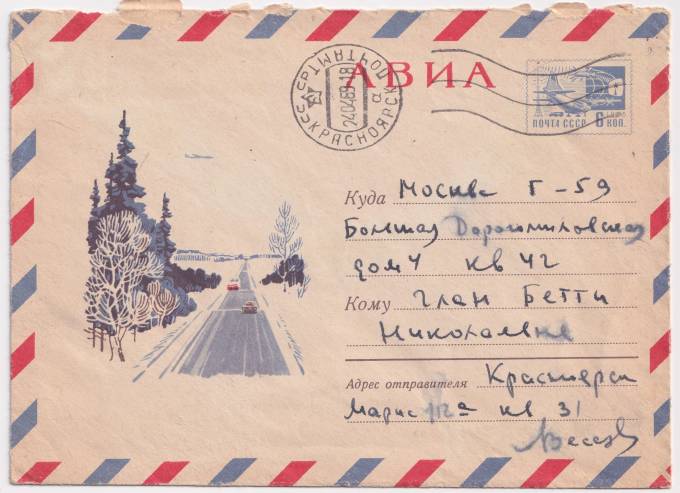 АВИА
СССР КРАСНОЯРСК ПОЧТАМТ
24.04.69-18
ПОЧТА СССР 6 КОП.
Куда Москва Г-59
Большая Дорогомиловская
дом 4 кв 42
Кому Глан Бетти
Николаевне
Адрес отправителя Красноярск
Маркс кв 31